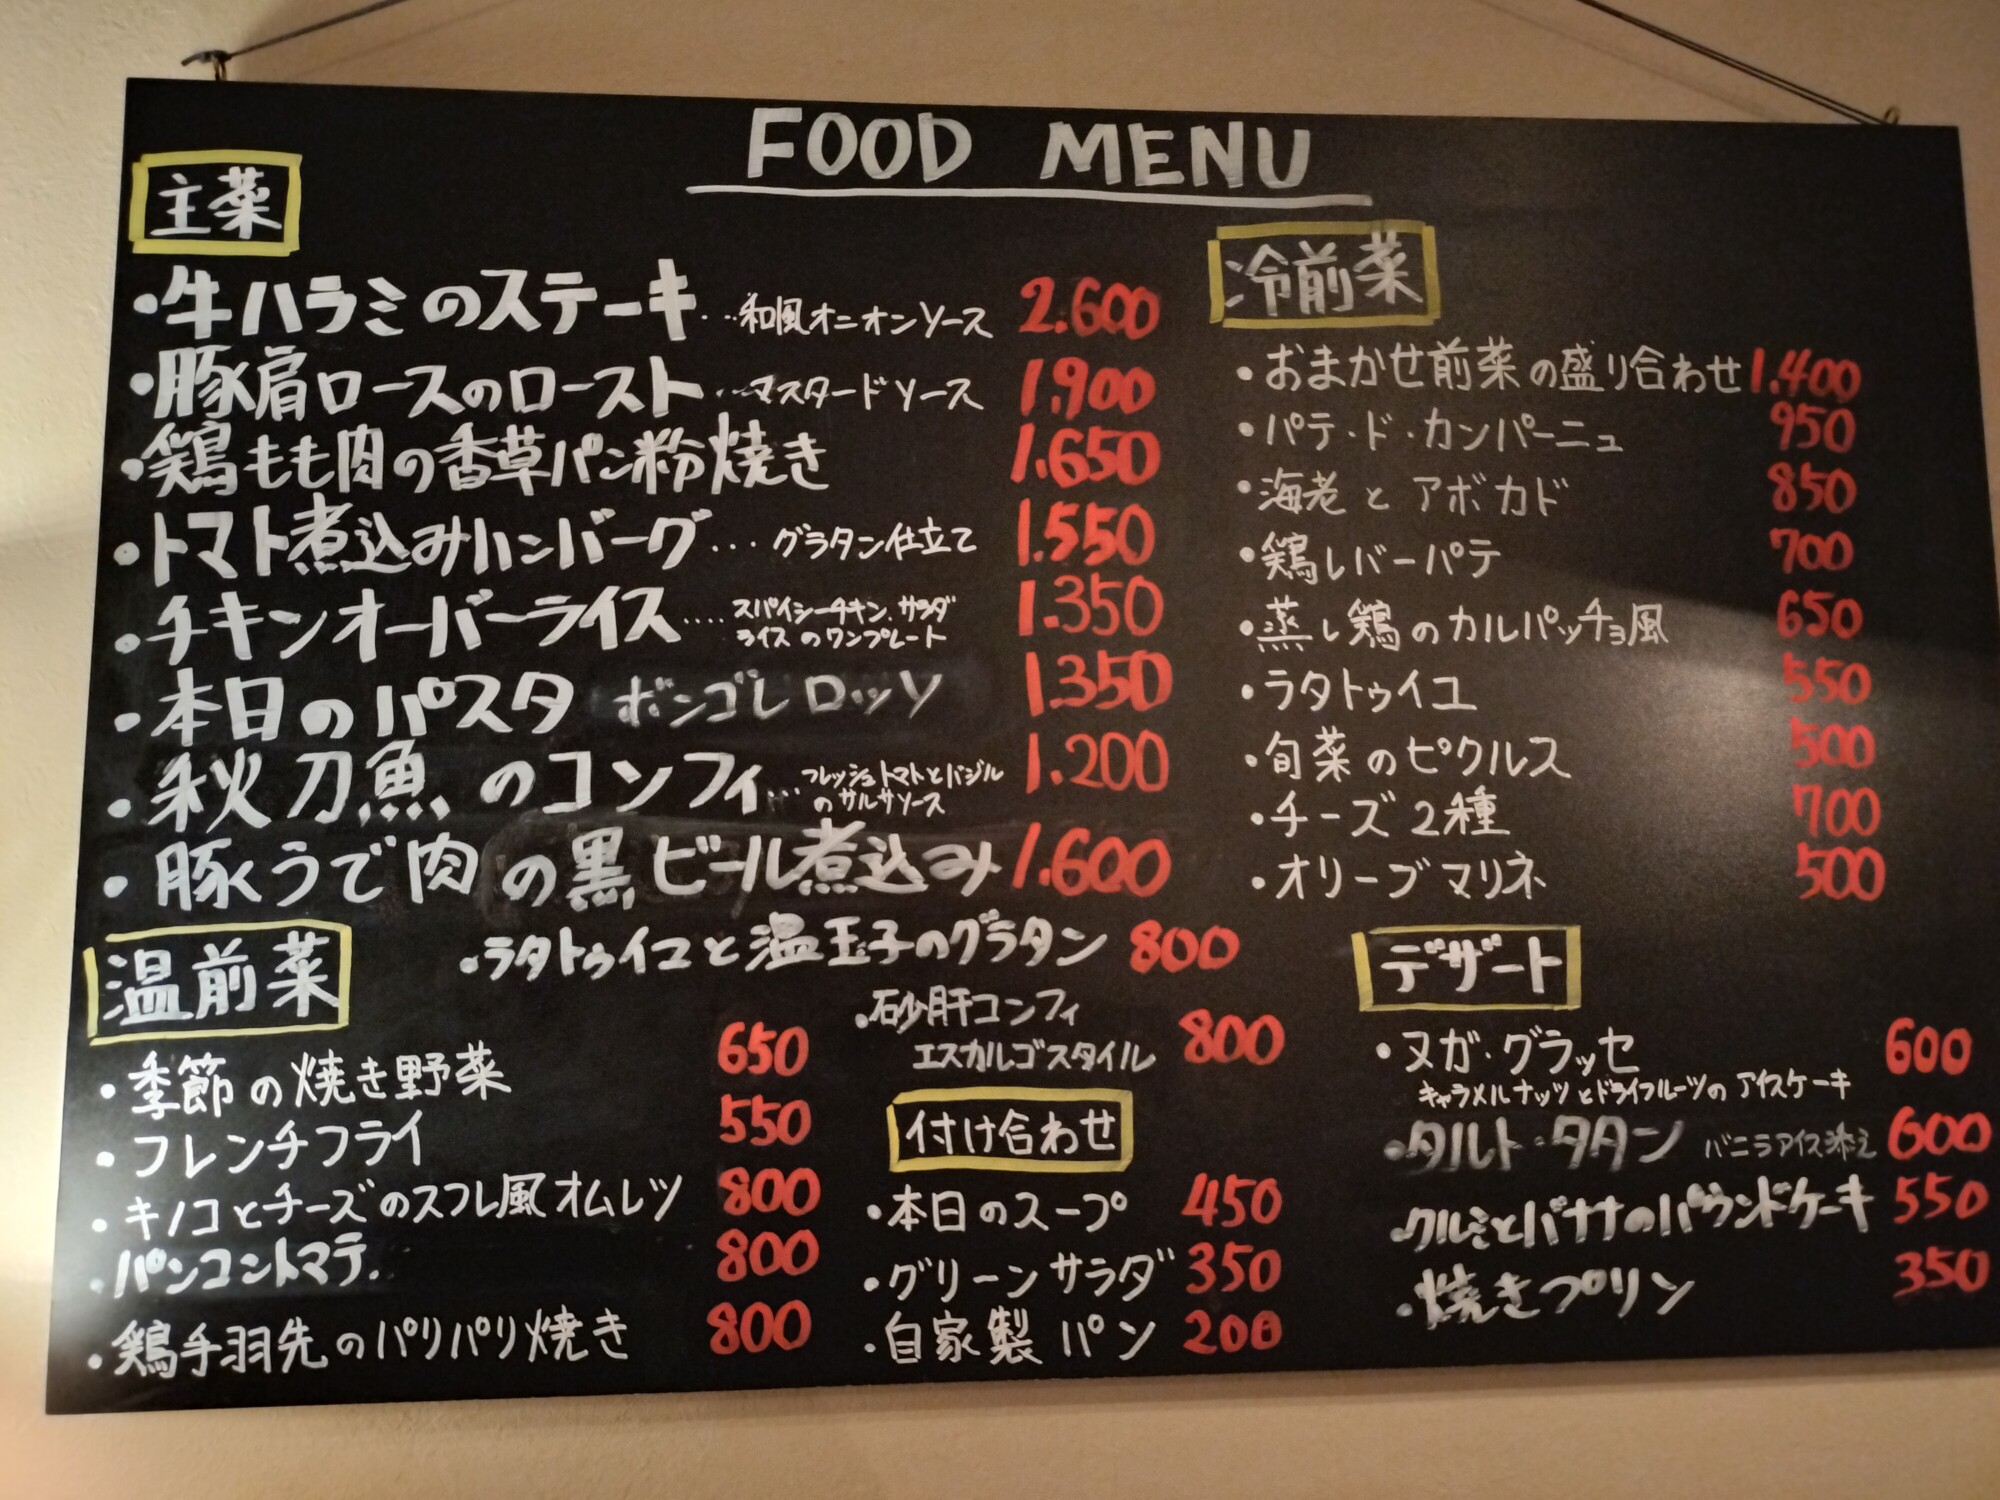 FOOD MENU
主菜
・牛ハラミのステーキ…和風オニオンソース 2.600
・豚肩ロースのロースト…マスタードソース 1.900
・鶏もも肉の香草パン粉焼き 1.650
・トマト煮込みハンバーグ…グラタン仕立て 1.550
・チキンオーバーライス….スパイシーチキン、サラダ 1.350
ライスのワンプレート
・本日のパスタ ボンゴレロッソ 1.350
・秋刀魚のコンフィ…フレッシュトマトとバジル 1.200
のサルサソース
・豚うで肉の黒ビール煮込み 1.600
冷前菜
・おまかせ前菜の盛り合わせ 1.400
・パテ・ド・カンパーニュ 950
・海老とアボカド 850
・鶏レバーパテ 700
・蒸し鶏のカルパッチョ風 650
・ラタトゥイユ 550
・旬菜のピクルス 500
・チーズ2種 700
・オリーブマリネ 500
温前菜
・ラタトゥイユと温玉子のグラタン 800
・砂肝コンフィ
エスカルゴスタイル 800
・季節の焼き野菜 650
・フレンチフライ 550
・キノコとチーズのスフレ風オムレツ 800
・パンコントマテ. 800
・鶏手羽先のパリパリ焼き 800
付け合わせ
・本日のスープ 450
・グリーンサラダ 350
・自家製パン 200
デザート
・ヌガ・グラッセ 600
キャラメルナッツとドライフルーツのアイスケーキ
・タルト・タタン バニラアイス添え 600
・クルミとバナナのパウンドケーキ 550
・焼きプリン 350